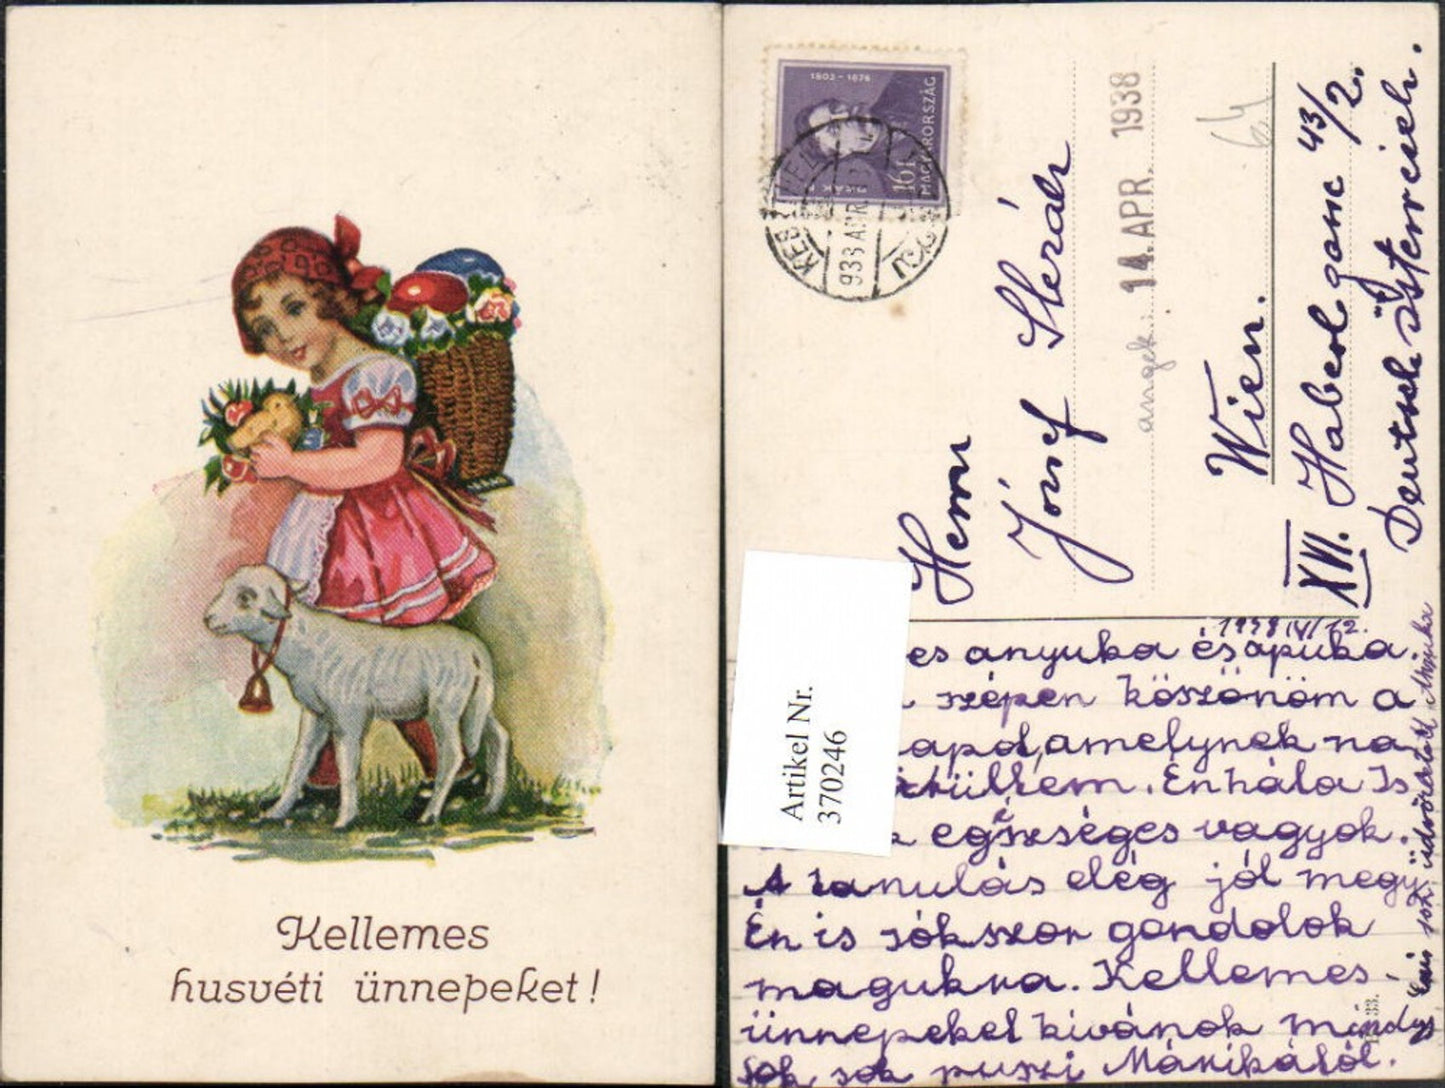 Kellemes
husvéti ünnepeket!
1803-1876
MAGYARORSZÁG
16f
DEÁK F
KESZTHELY
938 APR
14. APR. 1938
angek.:
64
Herrn
József
Wien.
XVI. Haberl gasse 43/2.
Deutsch Österreich.
Artikel Nr.
370246
1938 IV/12.
es anyuka és apuka.
szépen köszönöm a
lapot, amelynek na
örültem. Én hála Is
egészséges vagyok.
A tanulás elég jól megy
Én is sokszor gondolok
magukra. Kellemes
ünnepeket kivánok mindy
Sok sok puszi Márikától.